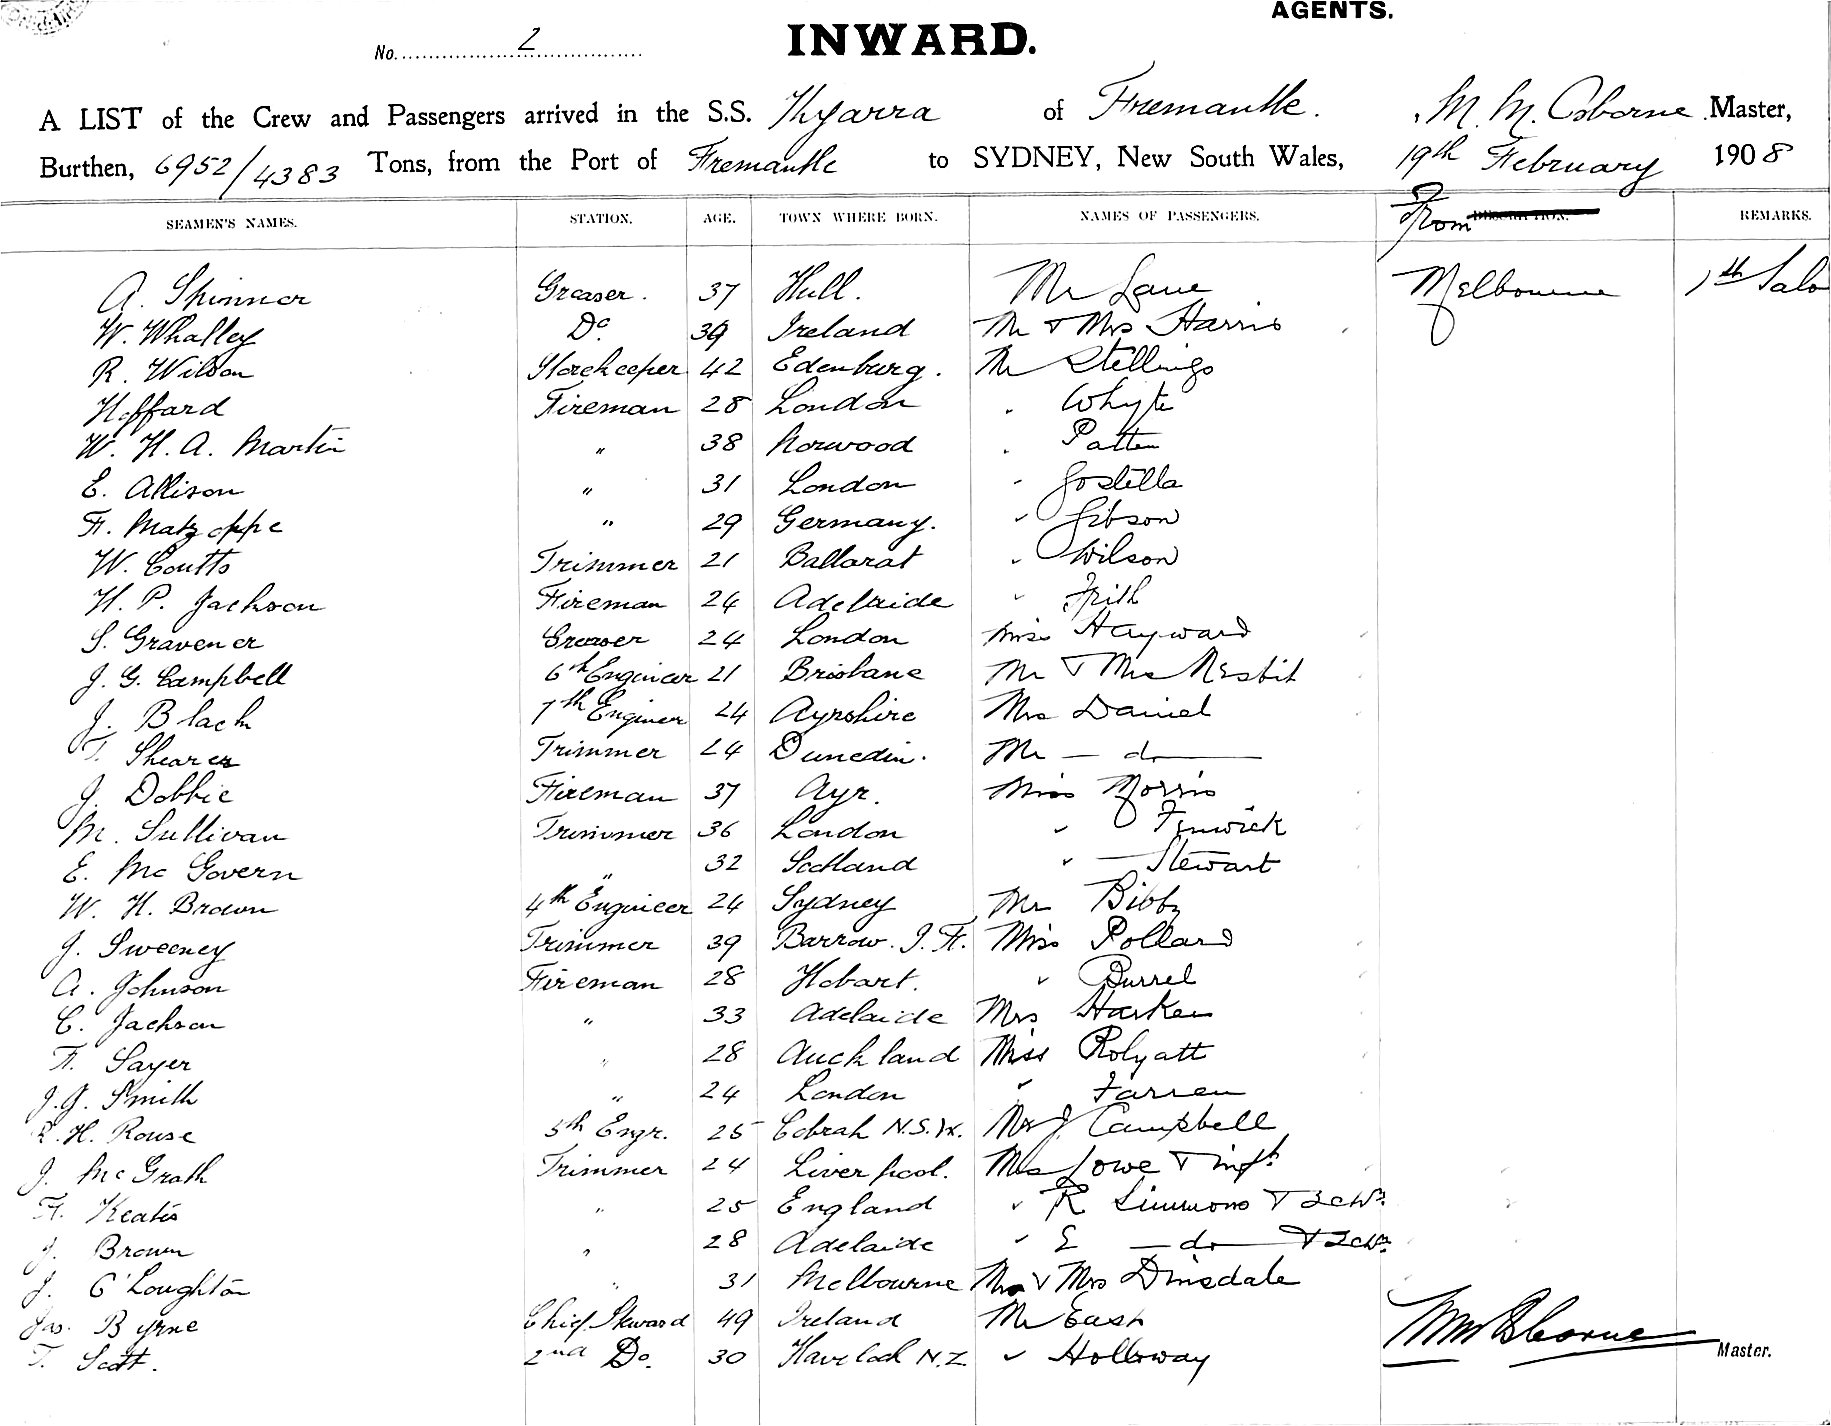 AGENTS.
No. 2 INWARD.
A LIST of the Crew and Passengers arrived in the S.S. Kyarra of Fremantle. M. M. Osborne Master,
Burthen, 6952/4383 Tons, from the Port of Fremantle to SYDNEY, New South Wales, 19th February 1908
SEAMEN'S NAMES. STATION. AGE. TOWN WHERE BORN. NAMES OF PASSENGERS. From DESCRIPTION. REMARKS.
A. Skinner Greaser. 37 Hull. Mr Lane Melbourne 1th Salo
W. Whalley Do 39 Ireland Mr & Mrs Harris
R. Wilson Storekeeper 42 Edenburg. Mr Stellings
Hoffard Fireman 28 London " Whyte
W. H. A. Martin " 38 Norwood " Patten
E. Allison " 31 London " Gostella
F. Matzoppe " 29 Germany. " Gibson
W. Coutts Trimmer 21 Ballarat " Wilson
H. P. Jackson Fireman 24 Adelaide " Frith
S. Gravener Greaser 24 London Miss Hayward
J. G. Campbell 6th Engineer 21 Brisbane Mr & Mrs Nesbit
J. Black 7th Enginer 24 Ayrshire Mrs Daniel
T. Shearer Trimmer 24 Dunedin. Mr — do —
J. Dobbie Fireman 37 Ayr. Miss Morris
M. Sullivan Trimmer 36 London " Fenwick
E. McGovern " 32 Scotland " Stewart
W. H. Brown 4th Engineer 24 Sydney Mr Bibby
J. Sweeney Trimmer 39 Barrow. I. F. Miss Pollard
A. Johnson Fireman 28 Hobart. " Burrel
C. Jackson " 33 Adelaide Mrs Harken
F. Sayer " 28 Auckland Miss Rolyatt
J. J. Smith " 24 London " Farren
H. Rouse 5th Engr. 25 Cobrah N.S.W. Mr J Campbell
J. McGrath Trimmer 24 Liverpool. Mrs Lowe & inft
F. Keatis " 25 England " R Simmons & 2 chn
J. Brown " 28 Adelaide " E — do — & 2 chn
J. O'Loughton " 31 Melbourne Mr & Mrs Dinsdale
Jas. Byrne Chief Steward 49 Ireland Mr East
T. Scott. 2nd Do. 30 Havelock N.Z " Holloway
MM Osborne Master.